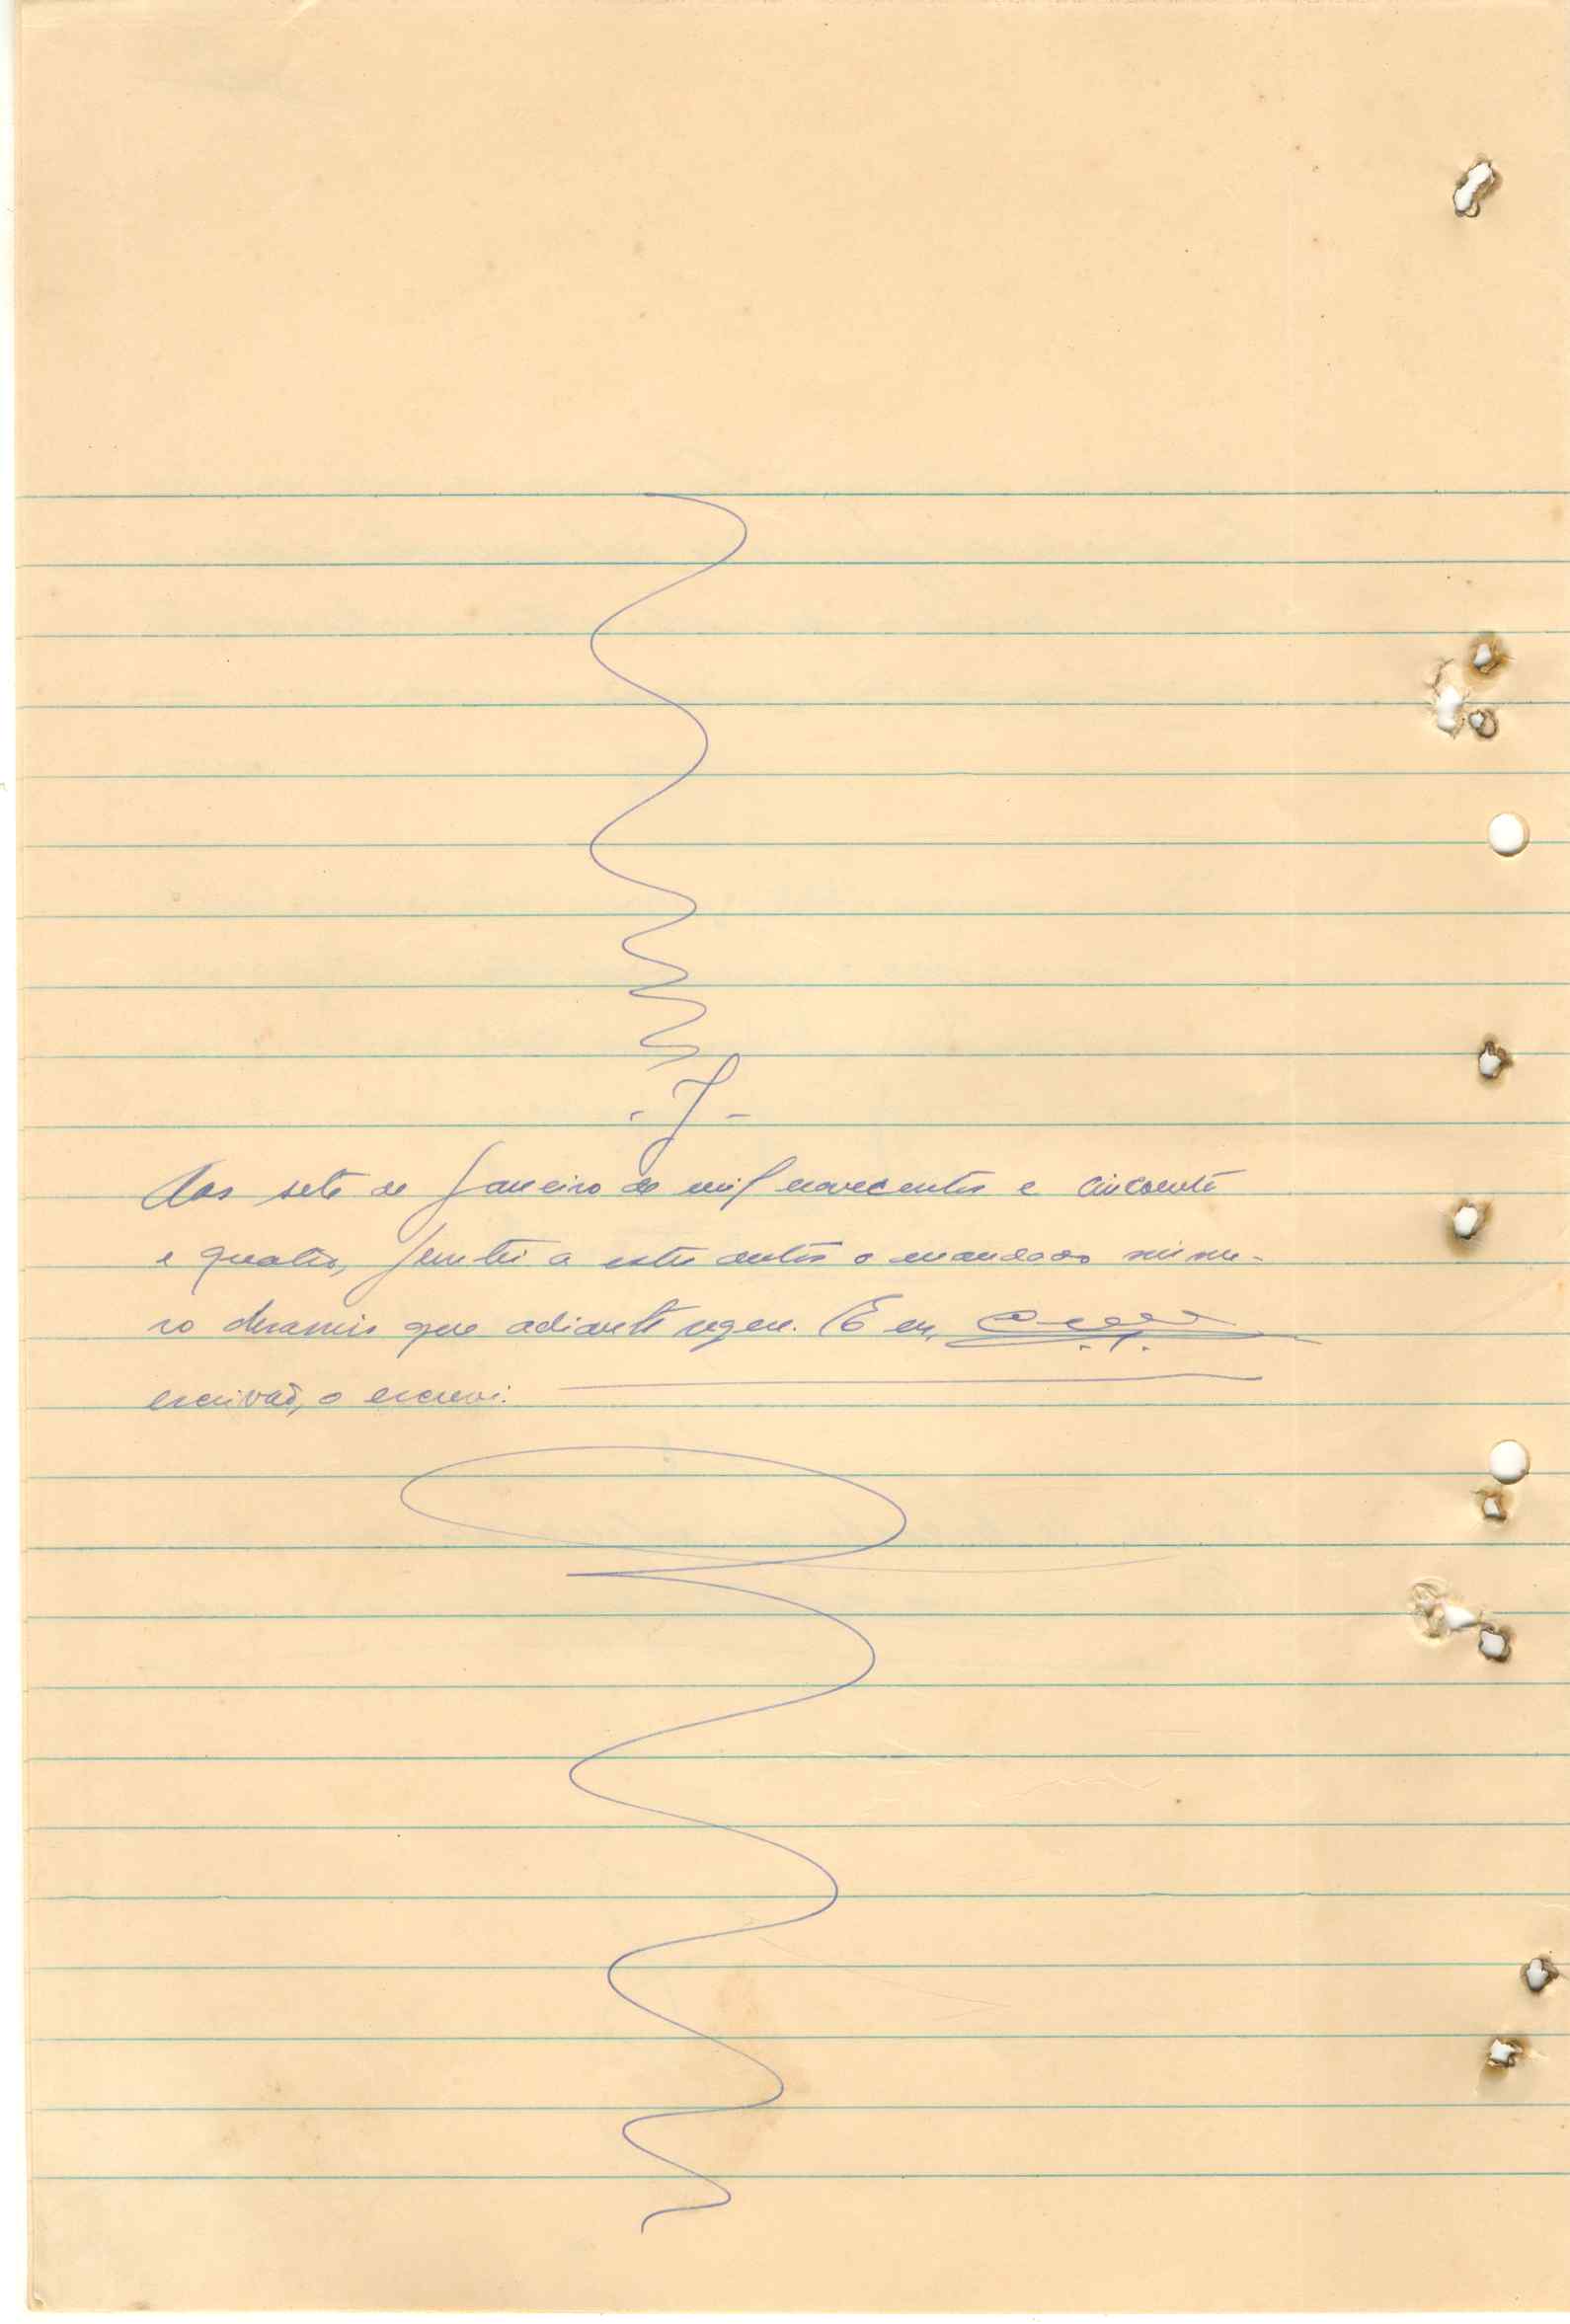 - J -
Aos sete de Janeiro de mil novecentos e cincoenta
e quatro, juntei a estes autos o mandado núme-
ro dezasseis que adiante segue. E eu,
escrivão, o escrevi.